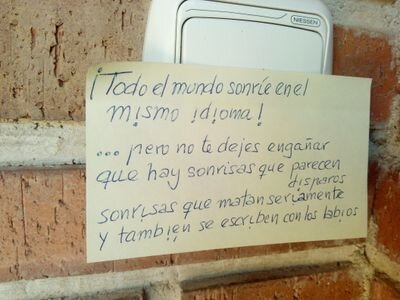 NIESSEN
¡Todo el mundo sonríe en el
mismo idioma!
... pero no te dejes engañar
que hay sonrisas que parecen
disparos
sonrisas que matan seriamente
y también se escriben con los labios